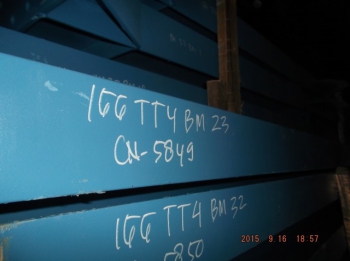 166 TT4 BM 23
CN-5849
166 TT4 BM 32
5850
2015 9.16 18:57